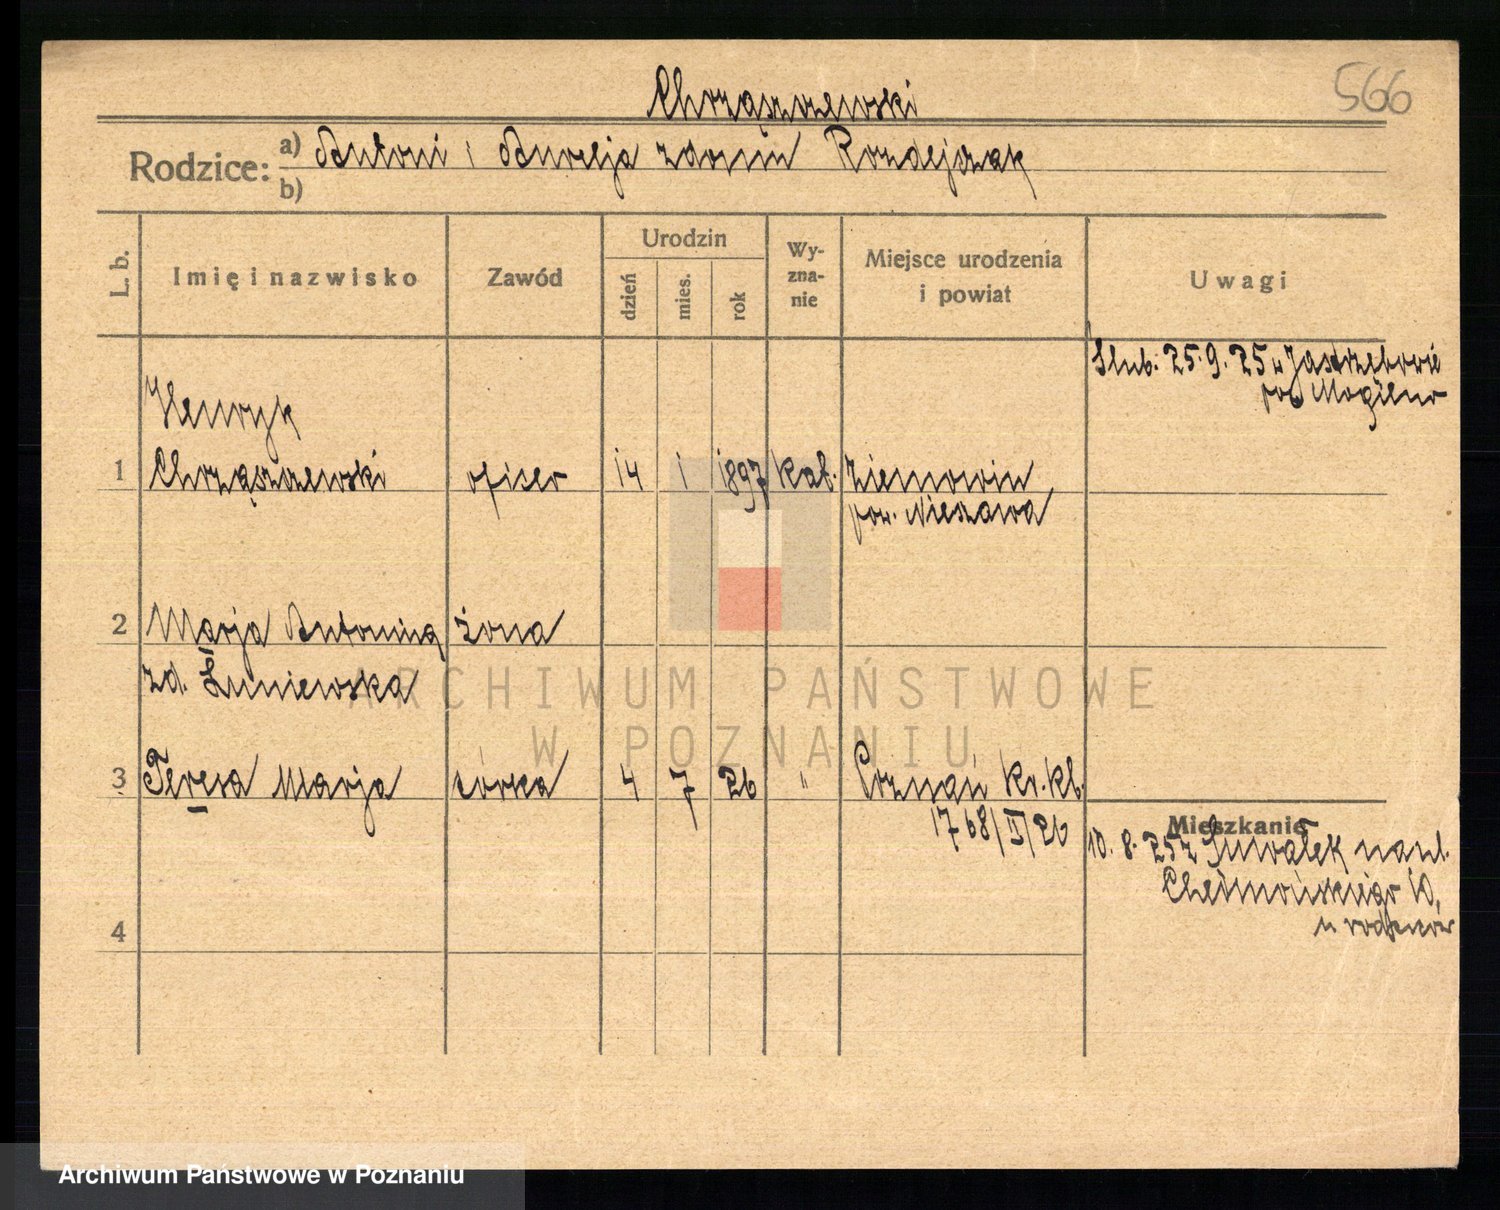 566
Chrząszczewski
Rodzice: a) Antoni i Aurelja z domu
b)
L. b. Imię i nazwisko Zawód Urodzin dzień mies. rok Wy-zna-nie Miejsce urodzenia i powiat Uwagi
Ślub: 25.9.25 w
pow Mogilno
Henryk
1 Chrząszczewski oficer 14 1 1897 kat. Ziemowin
pow. Nieszawa
2 Marja Antonina żona
zd. Łuniewska
3 Teresa Marja córka 4 7 26 " Poznań Kr. kl.
1768/II/26
Mieszkanie
10. 8. 25 z Suwałek na ul.
Chełmońskiego 10,
u rodziców
4
ARCHIWUM PAŃSTWOWE
W POZNANIU
Archiwum Państwowe w Poznaniu